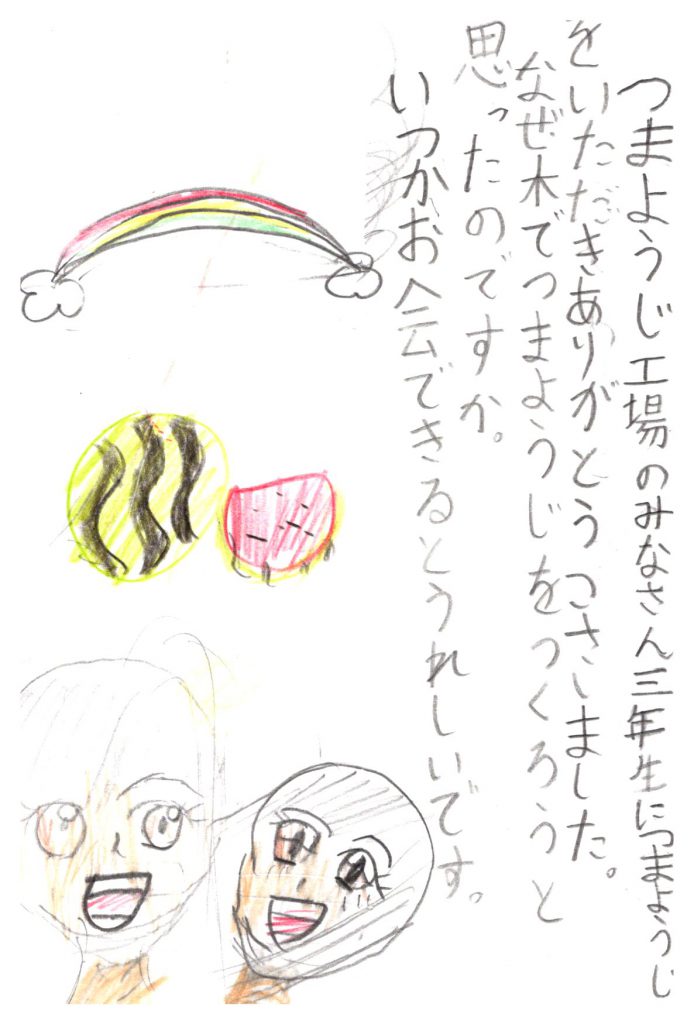 つまようじ工場のみなさん三年生につまようじ
をいただきありがとうございました。
なぜ木でつまようじをつくろうと
思ったのですか。
いつかお会できるとうれしいです。